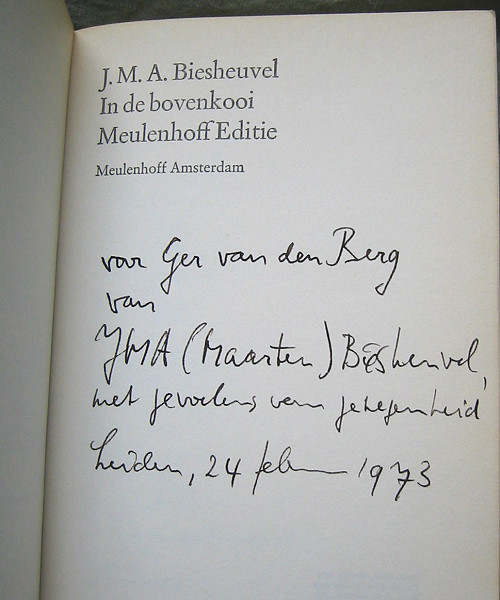 J. M. A. Biesheuvel
In de bovenkooi
Meulenhoff Editie
Meulenhoff Amsterdam
voor Ger van den Berg
van
JMA (Maarten) Biesheuvel,
met gevoelens van genegenheid
Leiden, 24 febr 1973